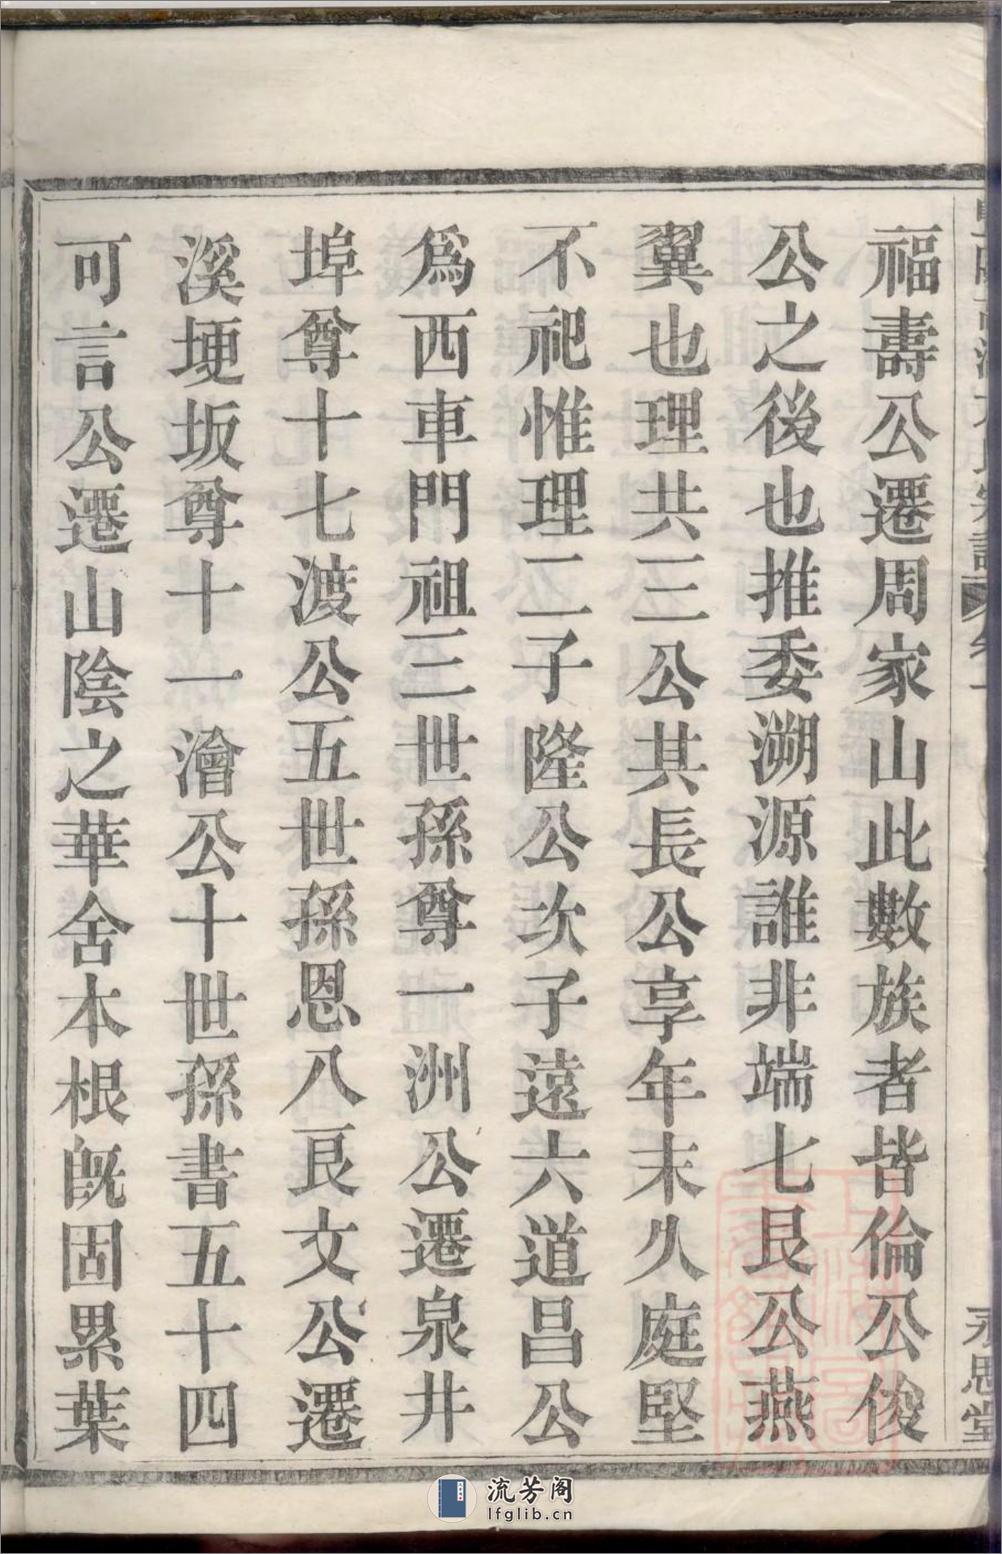 福壽公遷周家山此數族者皆倫公俊
公之後也推委溯源誰非端七艮公燕
翼也理共三公共長公享年末久庭堅
不祀惟理二子隆公次子遠六道昌公
為西車門祖三世孫尊一洲公遷泉井
埠尊十七渡公五世孫恩八艮文公遷
溪埂坂尊十一澮公十世孫書五十四
可言公遷山陰之華舍本根旣固累葉
永思堂
流芳阁
lfglib.cn